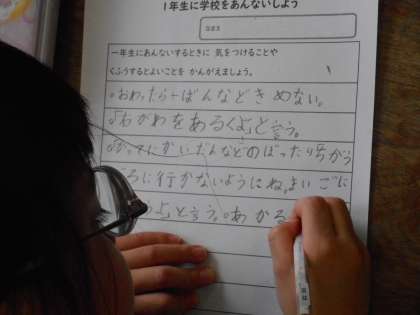 1年生に学校をあんないしよう
なまえ
一年生にあんないするときに 気をつけることや
くふうするとよいことを かんがえましょう。
。おわったら一ばんなどきめない。
「右がわをあるくよ」と言う。
。かってにかいだんなどのぼったりちがう
ころに行かないようにね。よいごに
よ」と言う。。あかる